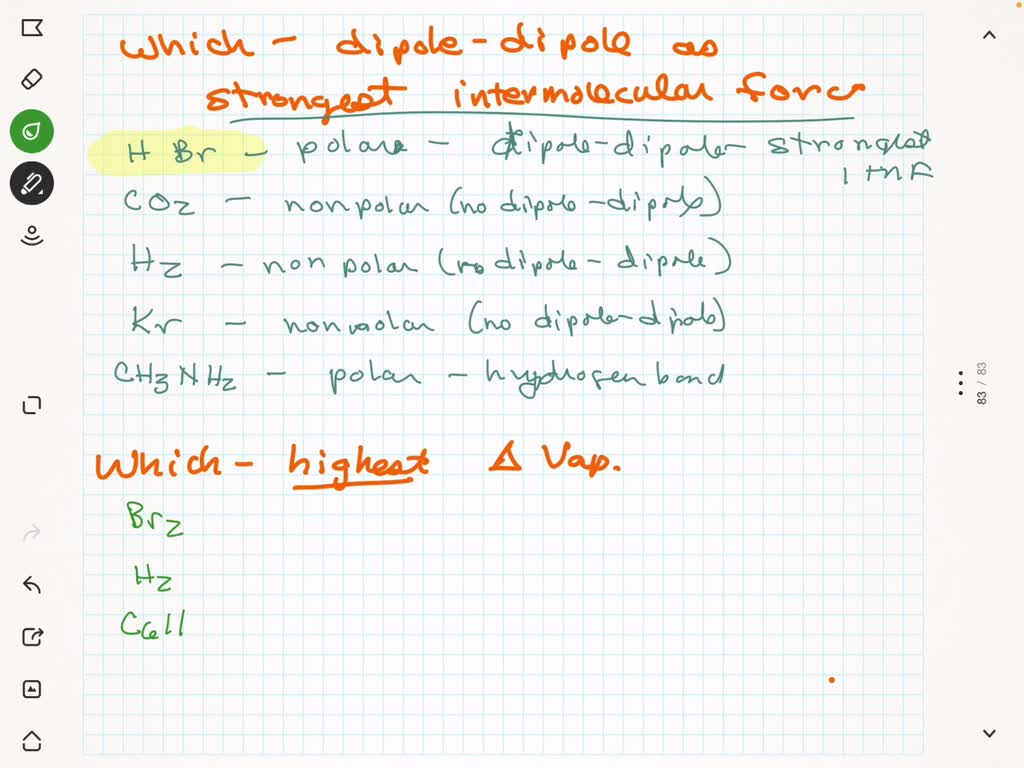 which - dipole-dipole as
strongest intermolecular force
H Br - polar - dipole-dipole- strongest
IMF
CO2 - nonpolar (no dipole-dipole)
H2 - non polar (no dipole-dipole)
Kr - nonpolar (no dipole-dipole)
CH3NH2 - polar - hydrogen bond
83 / 83
Which - highest Δ Vap.
Br2
H2